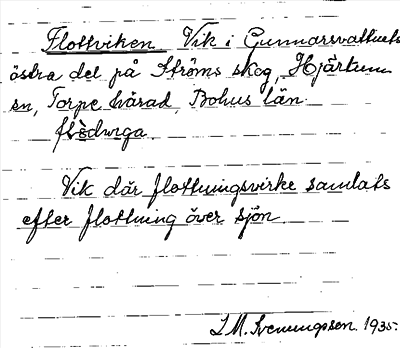 Flottviken Vik i Gunnarsvattnets
östra del på Ströms skog, Hjärtum
sn, Torpe härad, Bohus län.
Vik där flottningsvirke samlats
efter flottning över sjön.
I.M. Svenungsson. 1935.